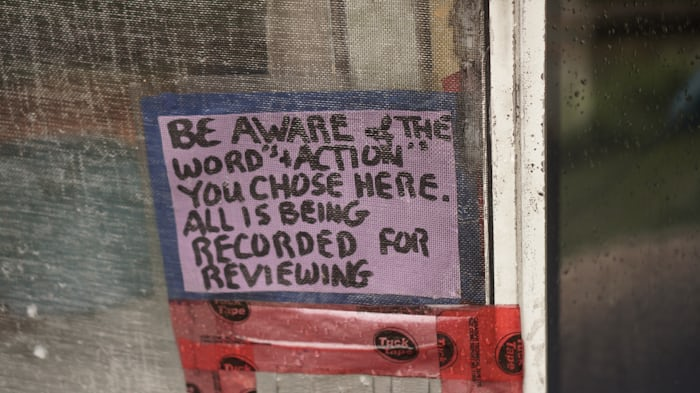 BE AWARE of THE
WORD"s+ACTION"
YOU CHOSE HERE.
ALL IS BEING
RECORDED FOR
REVIEWING
Tuck
Tape
Tuck
Tape
Tuck
Tape